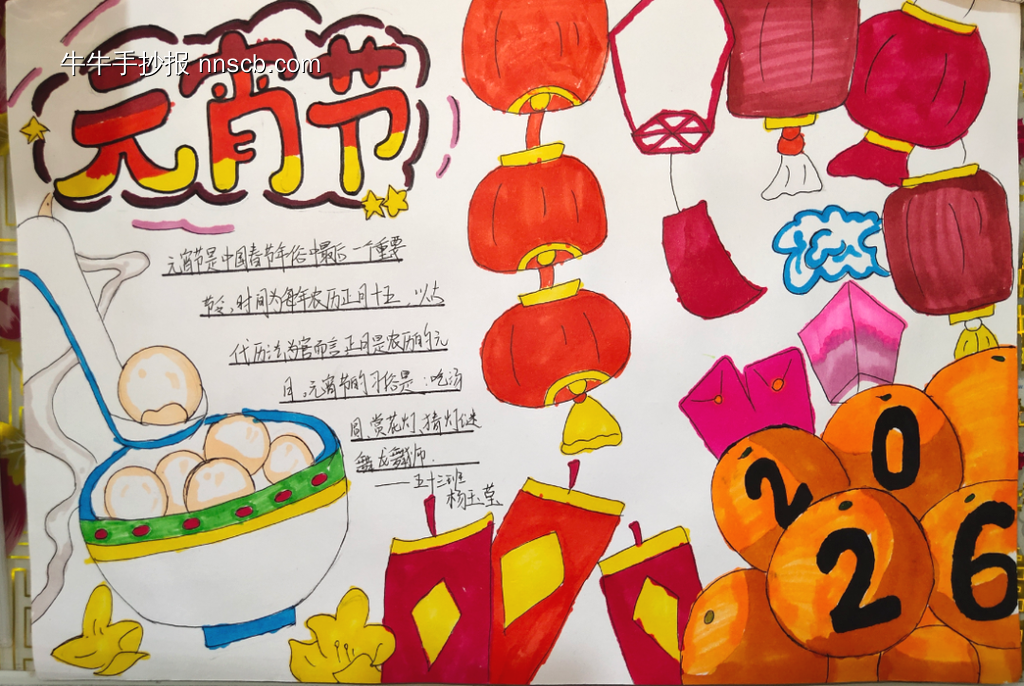 牛牛手抄报 nnscb.com
元宵节
元宵节是中国春节年俗中最后一个重要
节令,时间为每年农历正月十五,以古
代历法为官而言正月是农历的元
月。元宵节的习俗是:吃汤
圆、赏花灯、猜灯谜
舞龙舞狮.
——五十三班
杨玉莹
2 0
2 6